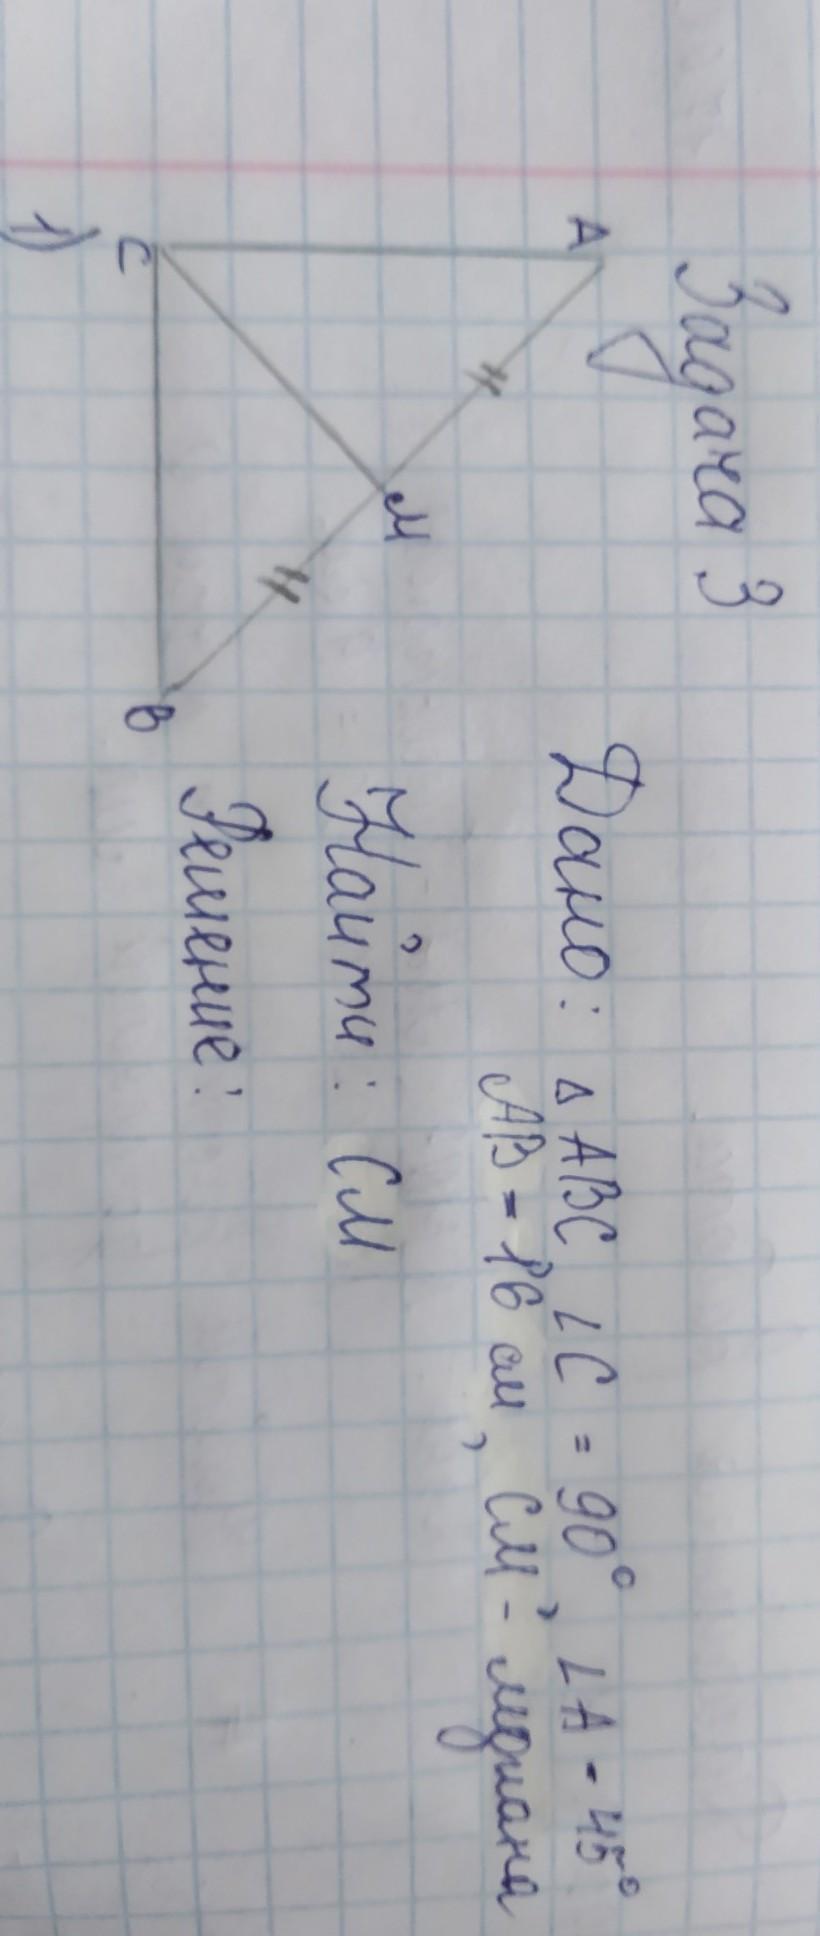 Задача 3
Дано: △ ABC, ∠C = 90°, ∠A = 45°
AB = 16 см, CM - медиана
Найти: CM
Решение:
A
M
C
B
1)